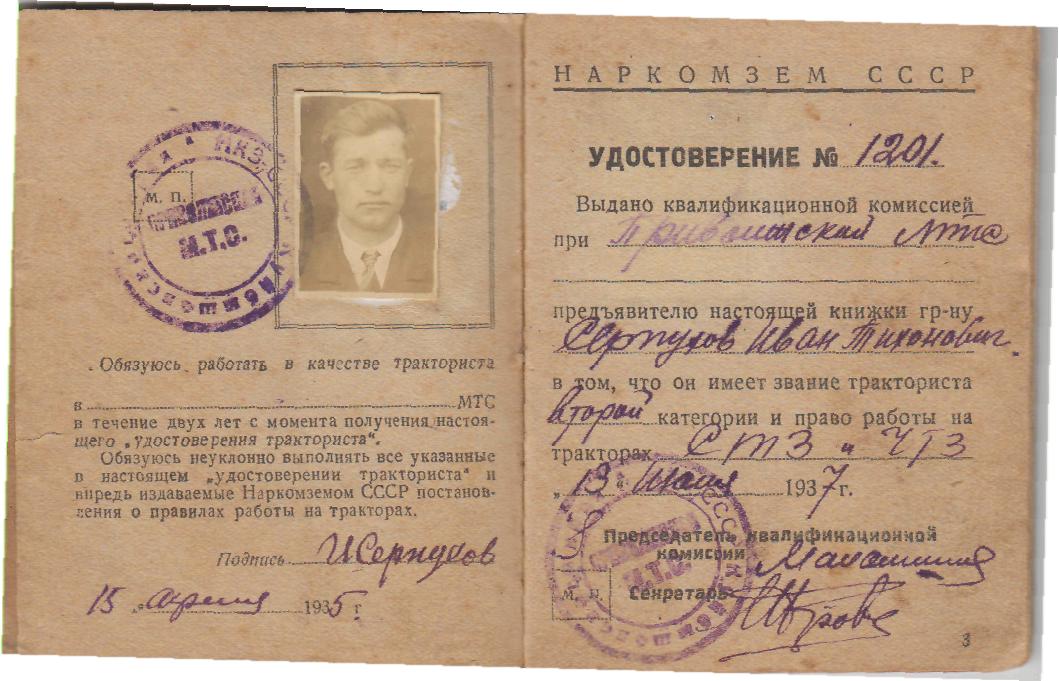 М. П.
М.Т.С.
Обязуюсь работать в качестве тракториста
в МТС
в течение двух лет с момента получения настоя-
щего „удостоверения тракториста“.
Обязуюсь неуклонно выполнять все указанные
в настоящем „удостоверении тракториста“ и
впредь издаваемые Наркомземом СССР постанов-
ления о правилах работы на тракторах.
Подпись И Серпухов
15 „ апреля 1935 г
НАРКОМЗЕМ СССР
УДОСТОВЕРЕНИЕ № 1201.
Выдано квалификационной комиссией
при мтс
предъявителю настоящей книжки гр-ну
Серпухов Иван Тихонович.
в том, что он имеет звание тракториста
второй категории и право работы на
тракторах СТЗ и ЧТЗ
„ 13 “ 1937 г.
Председатель квалификационной
комиссии
М.Т.С.
М. П. Секретарь
3